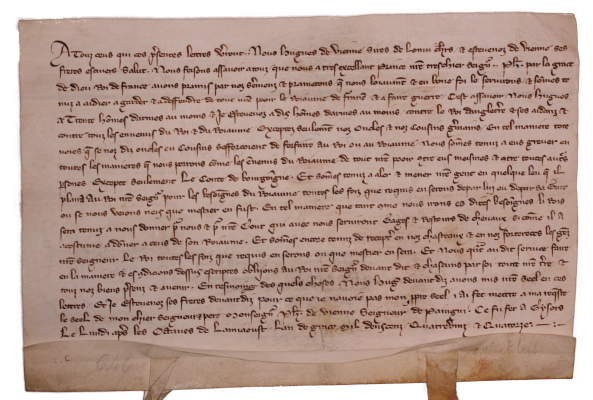 A Touz ceus qui ces p̃sentes lettres verront . Nous Hugues de vienne Sires de Lonvi chl̃rs . & estevenoz de vienne ses
freres escuiers Salut . Nous fesons assavoir a touz que nous a tres excellant prince nr̃e treschier seign̄ . Ph̃ . par la grace
de Diou Roi de France avons promis par noz seremenz & prometons que nous loiaument & en bone foi le servirons & somes te
nuz a aidier a garder & a deffendre de tout nr̃e pooir le Roiaume de France & a faire guerre . Cest assavoir Nous Hugues
a Trente homes darmes au moins & Je Estevenoz a dix homes darmes au moins contre le Roi dangleterre & ses aidanz &
contre touz les ennemis du Roi & du Roiaume Exceptez seulement noz Oncles & noz Cousins germains . En tel maniere tote
voies que se noz diz oncles ou Cousins sefforcoient de forfaire au Roi ou au Roiaume Nous somes tenuz a eus grever en
toutes les manieres que nous porrons come les ennemis du Roiaume de tout nr̃e pooir
p̃sones Excepte seulement Le Conte de bourgoigne . Et somes tenuz a aler & mener nr̃e gent en quelque leu que il
plaira au Roi nr̃e seign̄ pour les besoignes du Roiaume toutes les foiz que requis en serons de par lui ou de par sa Gent
ou se nous veions neis que mestier en fust . En tel maniere que tant come nous irons es dites besoignes li Rois
sera tenuz a nous doner p̃ nous & p̃ nr̃e Gent qui avec nous serviront Gages & Restour de chevaux si come il a
acostume a doner a ceus de son Roiaume . Et somes encore tenuz de recepter en noz chasteaux & en noz forteresces les genz
nr̃e seigneur Le Roi toutes les foiz que requis en serons ou que mestier en sera . Et Nous quant au dit servise faire
en la maniere & es condicions dessus escriptes oblijons au Roi nr̃e seign̄ devant dit & chascuns par soi toute nr̃e tr̃e &
touz noz biens p̃senz & avenir . En tesmoing des queles choses . Nous Hug̃ devant diz avons mis nr̃e Seel en ces
lettres . Et Je Estevenoz ses freres devant diz pour ce que je navoie pas mon ppre seel i ai fet mettre a ma requeste
le seel de mon chier seigneur & pere Monseign̄ . Ph̃ . de vienne Seigneur de Paingni . Ce fu fet a Gysorz
Le Lundi apres les Octaves de Lanciaoust . Lan de grace Mil Deuscenz Quatrevinz & Quatorze